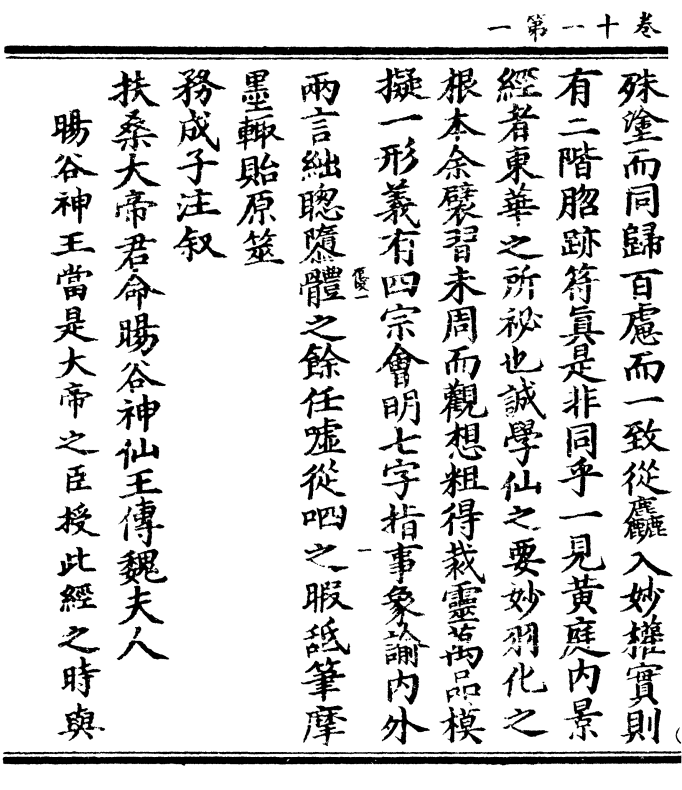 卷十一第一
殊塗而同歸百慮而一致從麤入妙權實則
有二階跡符眞是非同乎一見黃庭内景
經者東華之所祕也誠學仙之要妙羽化之
根本余襞習未周而觀想粗得裁靈萬品模
擬一形義有四宗會明七字指事象諭内外
兩言絀聦隳體之餘任噓從呬之暇舐筆摩
墨輙貽原筮
務成子注叙
扶桑大帝君命暘谷神仙王傳魏夫人
暘谷神王當是大帝之臣授此經之時與